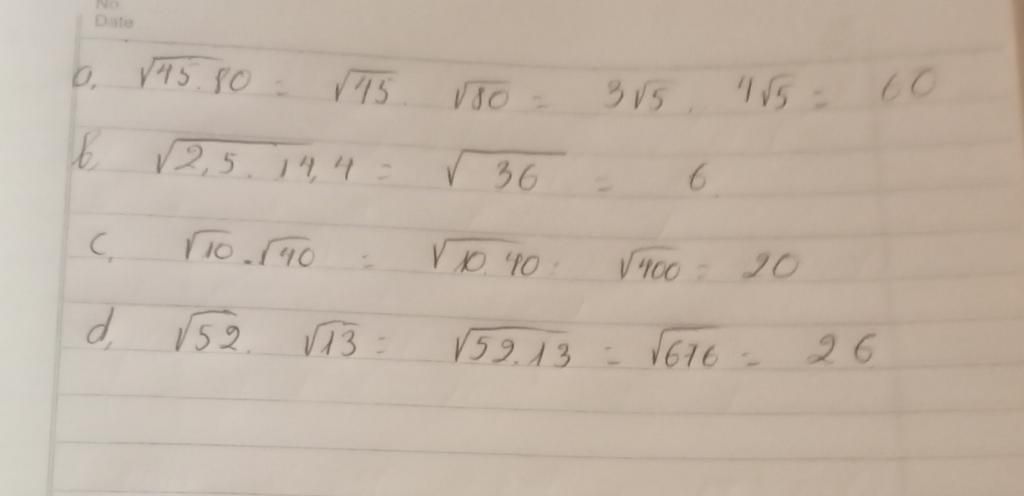 No.
Date
a, √45.80 = √45. √80 = 3√5 . 4√5 = 60
b, √2,5. 14,4 = √36 = 6
c, √10.√40 = √10.40 = √400 = 20
d, √52. √13 = √52.13 = √676 = 26